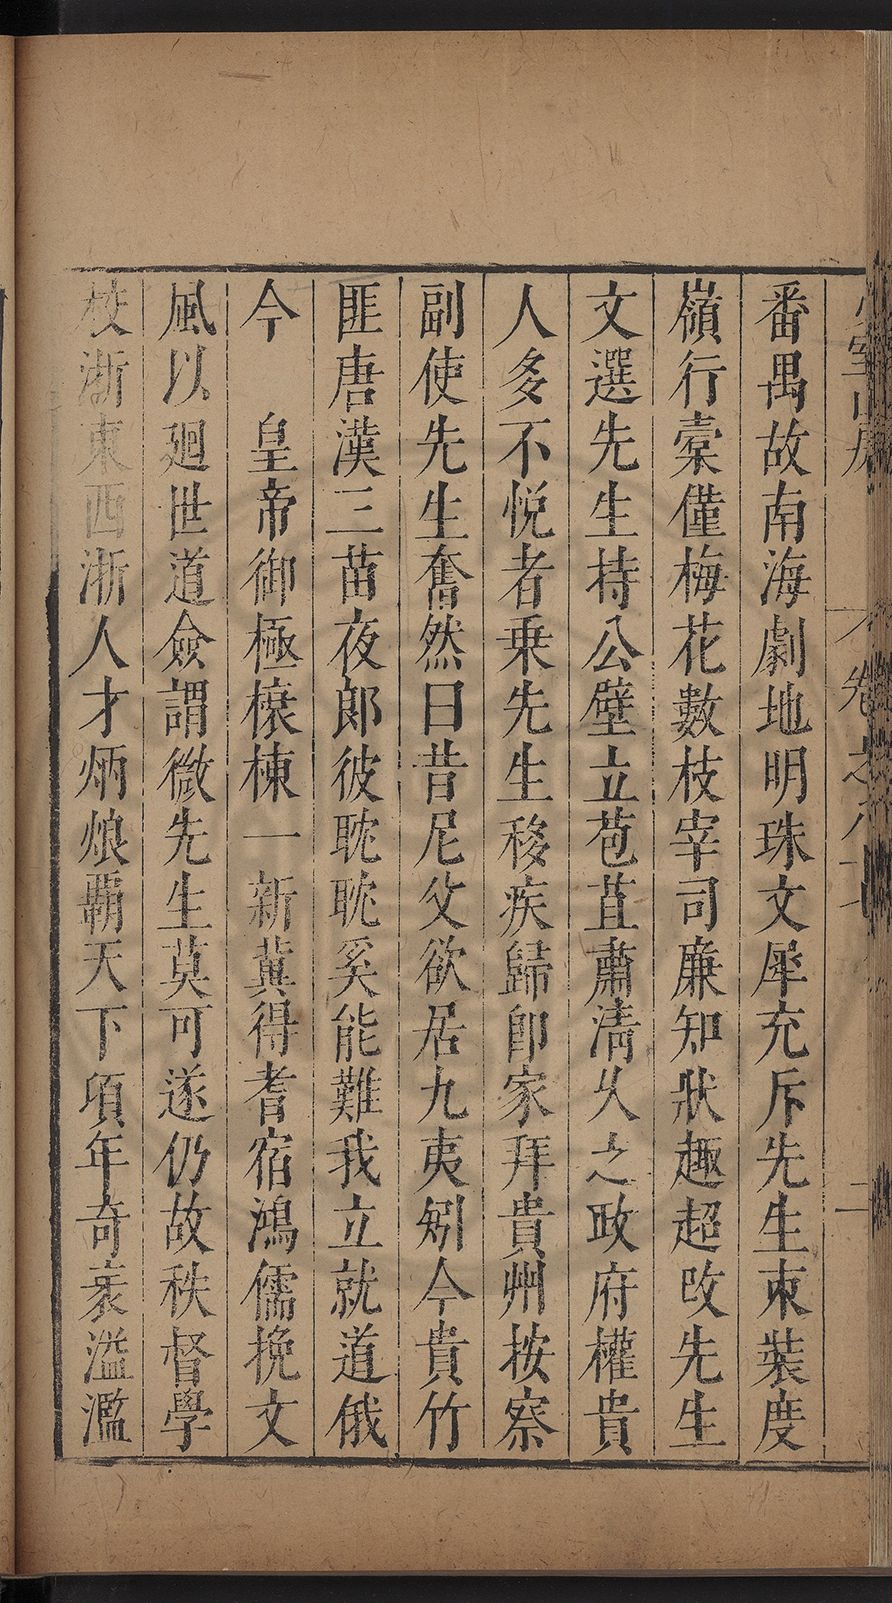 番禺故南海劇地明珠文犀充斥先生束裝度
嶺行橐僅梅花數枝宰司廉知狀趣超改先生
文選先生持公壁立苞苴肅清乆之政府權貴
人多不悅者乗先生移疾歸卽家拜貴州按察
副使先生奮然曰昔尼父欲居九夷矧今貴竹
匪唐漢三苗夜郎彼耽耽奚能難我立就道俄
今　皇帝御極榱棟一新冀得耆宿鴻儒挽文
風以廻世道僉謂微先生莫可遂仍故秩督學
枝浙東西浙人才炳烺覇天下項年奇袤溢濫